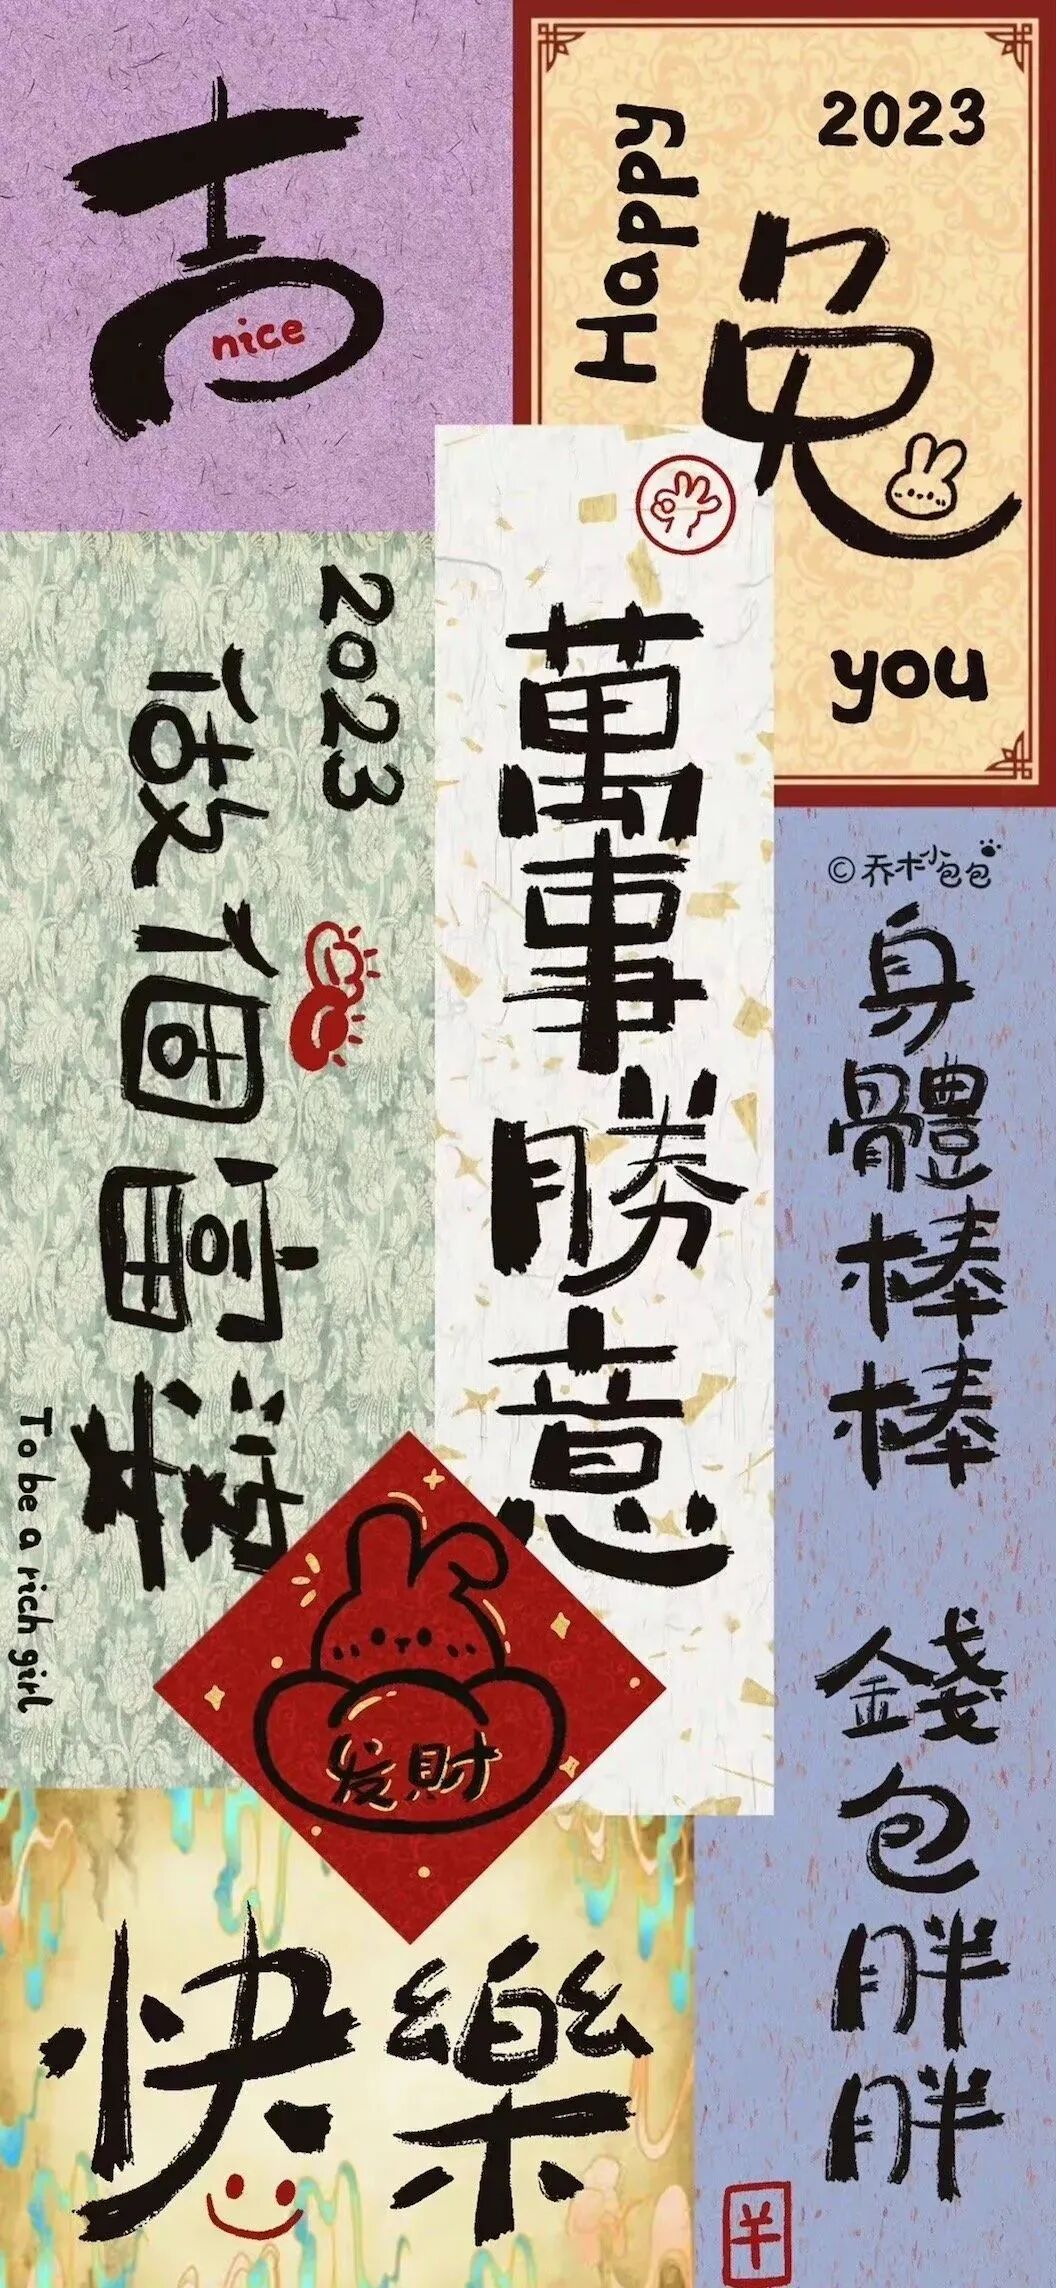 吉
nice
2023
Happy
兔
you
萬事勝意
2023
做個富婆
To be a rich girl
发財
©乔木小包包
身體棒棒 錢包胖胖
快樂
羊